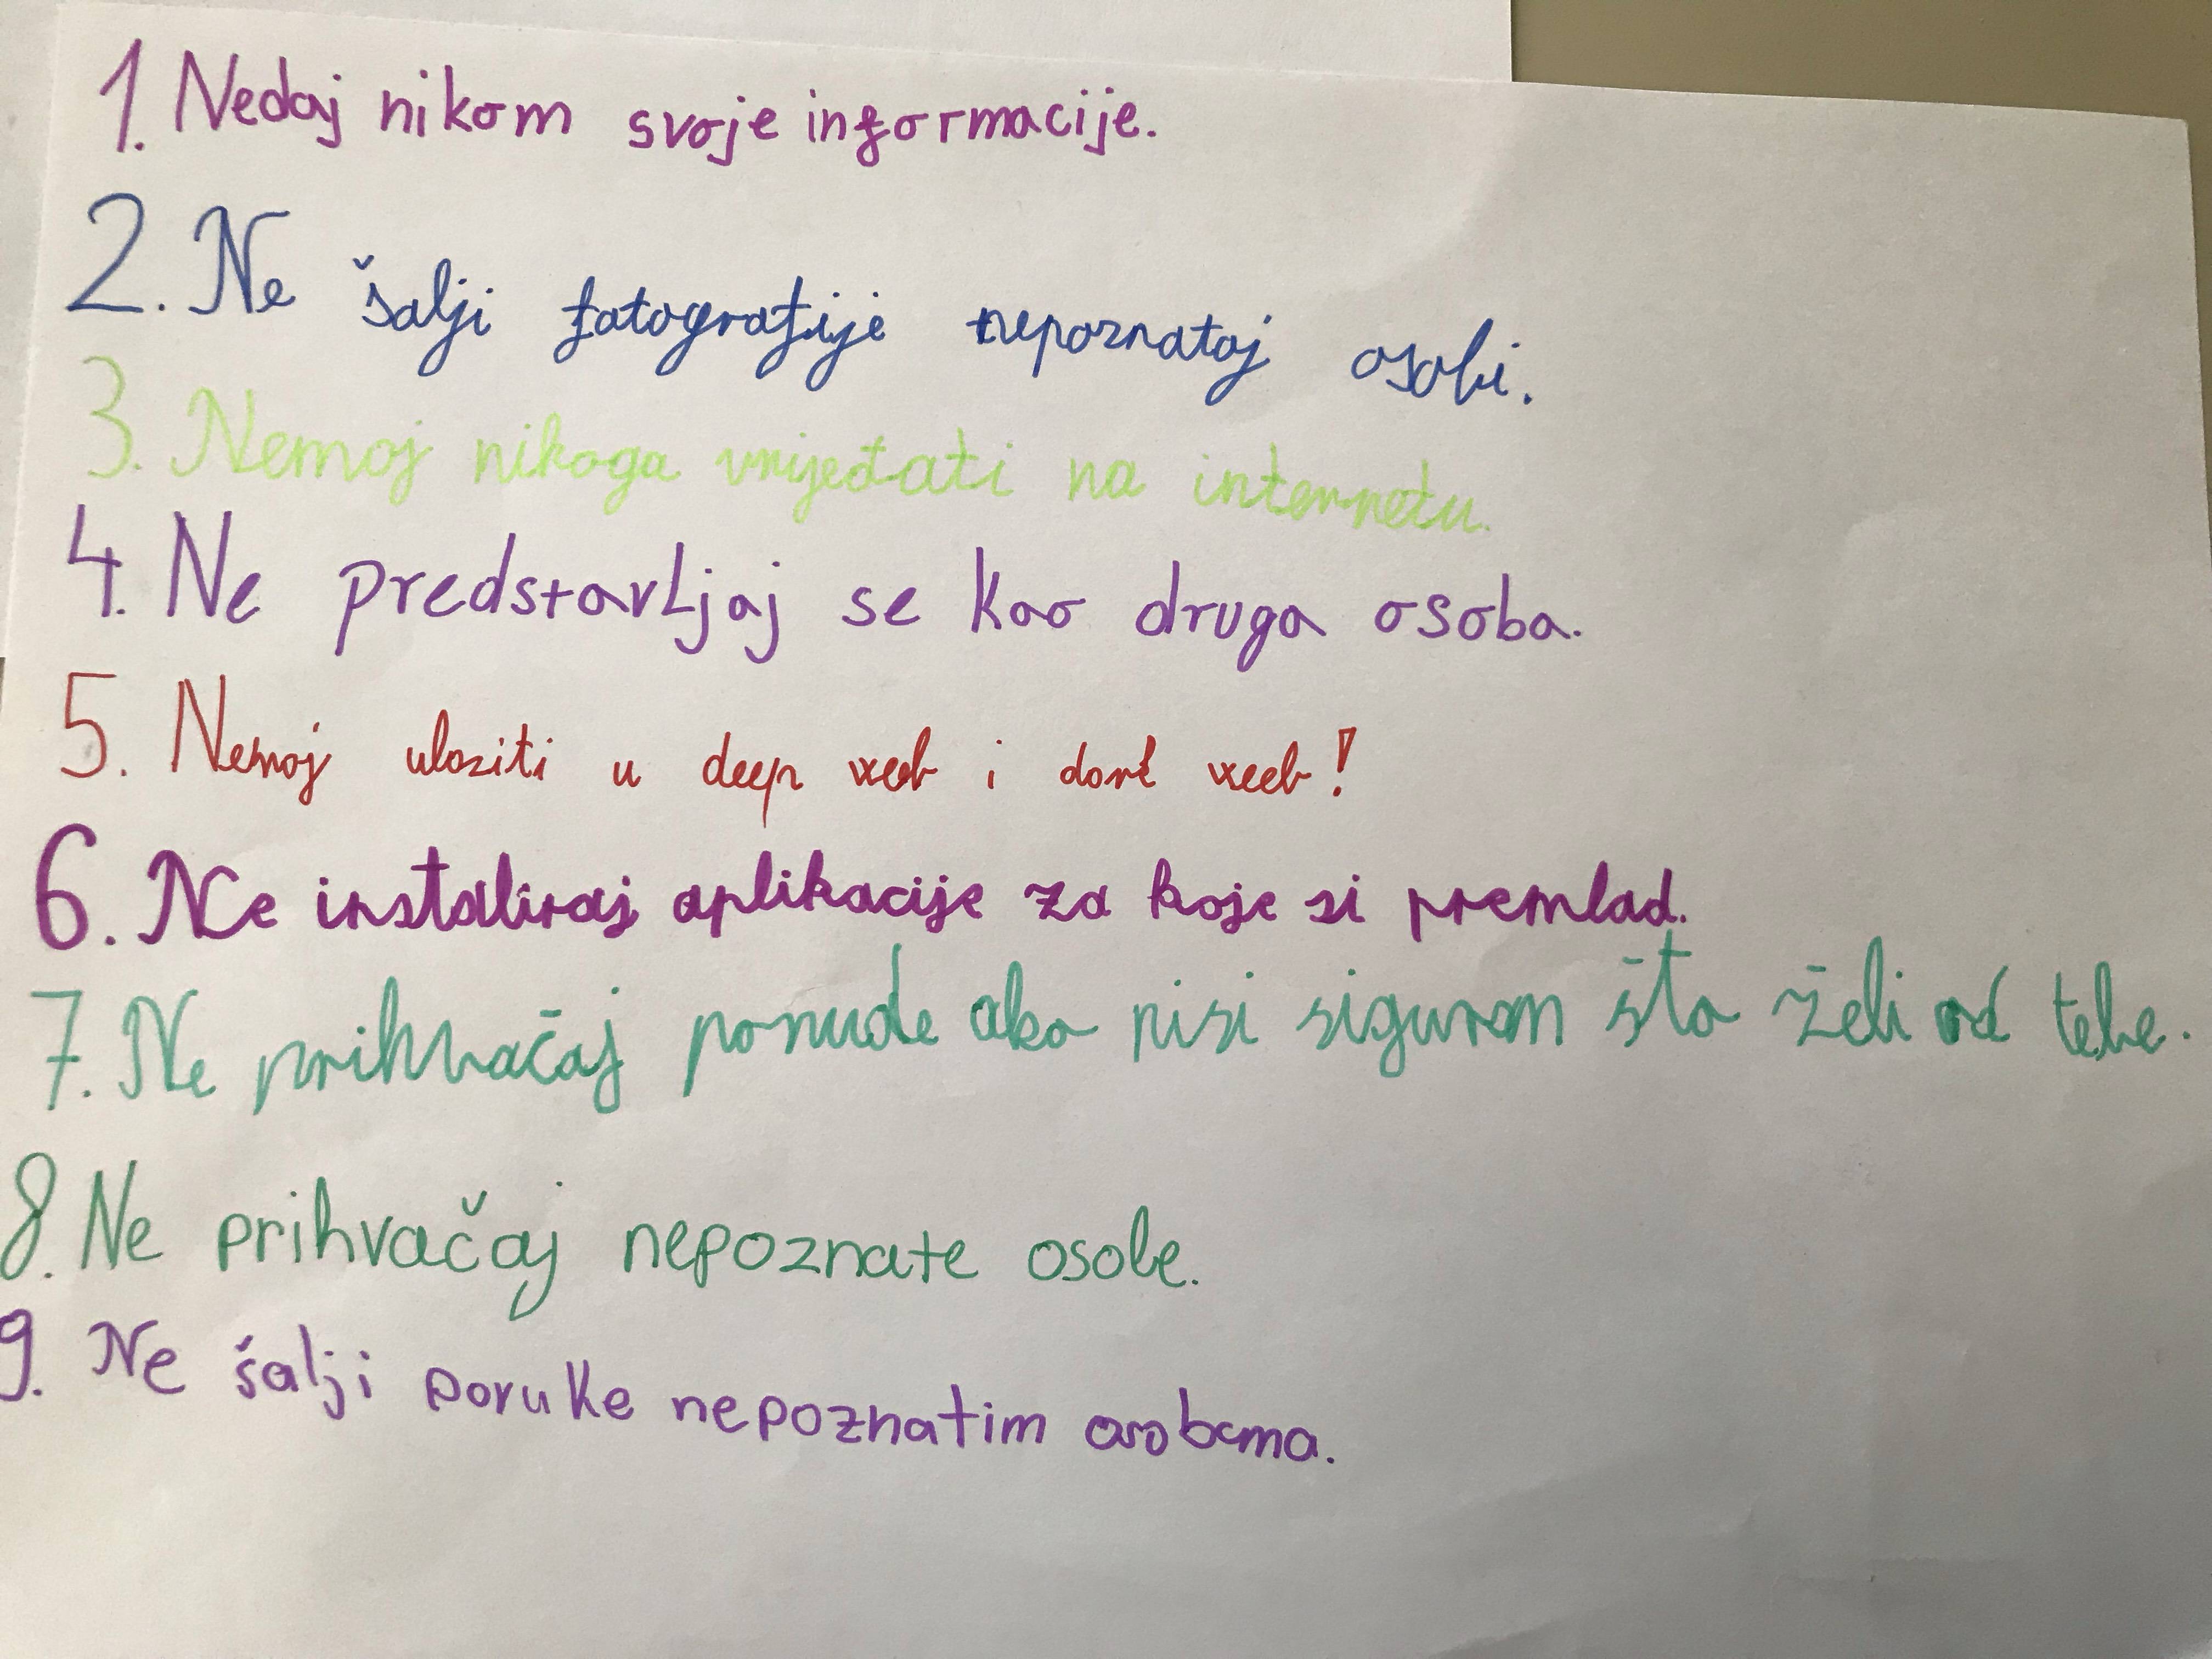 1. Nedaj nikom svoje informacije.
2. Ne šalji fotografije nepoznatoj osobi.
3. Nemoj nikoga vrijeđati na internetu.
4. Ne predstavljaj se kao druga osoba.
5. Nemoj ulaziti u deep web i dark web!
6. Ne instaliraj aplikacije za koje si premlad.
7. Ne prihvaćaj ponude ako nisi siguran što želi od tebe.
8. Ne prihvačaj nepoznate osobe.
9. Ne šalji poruke nepoznatim osobama.